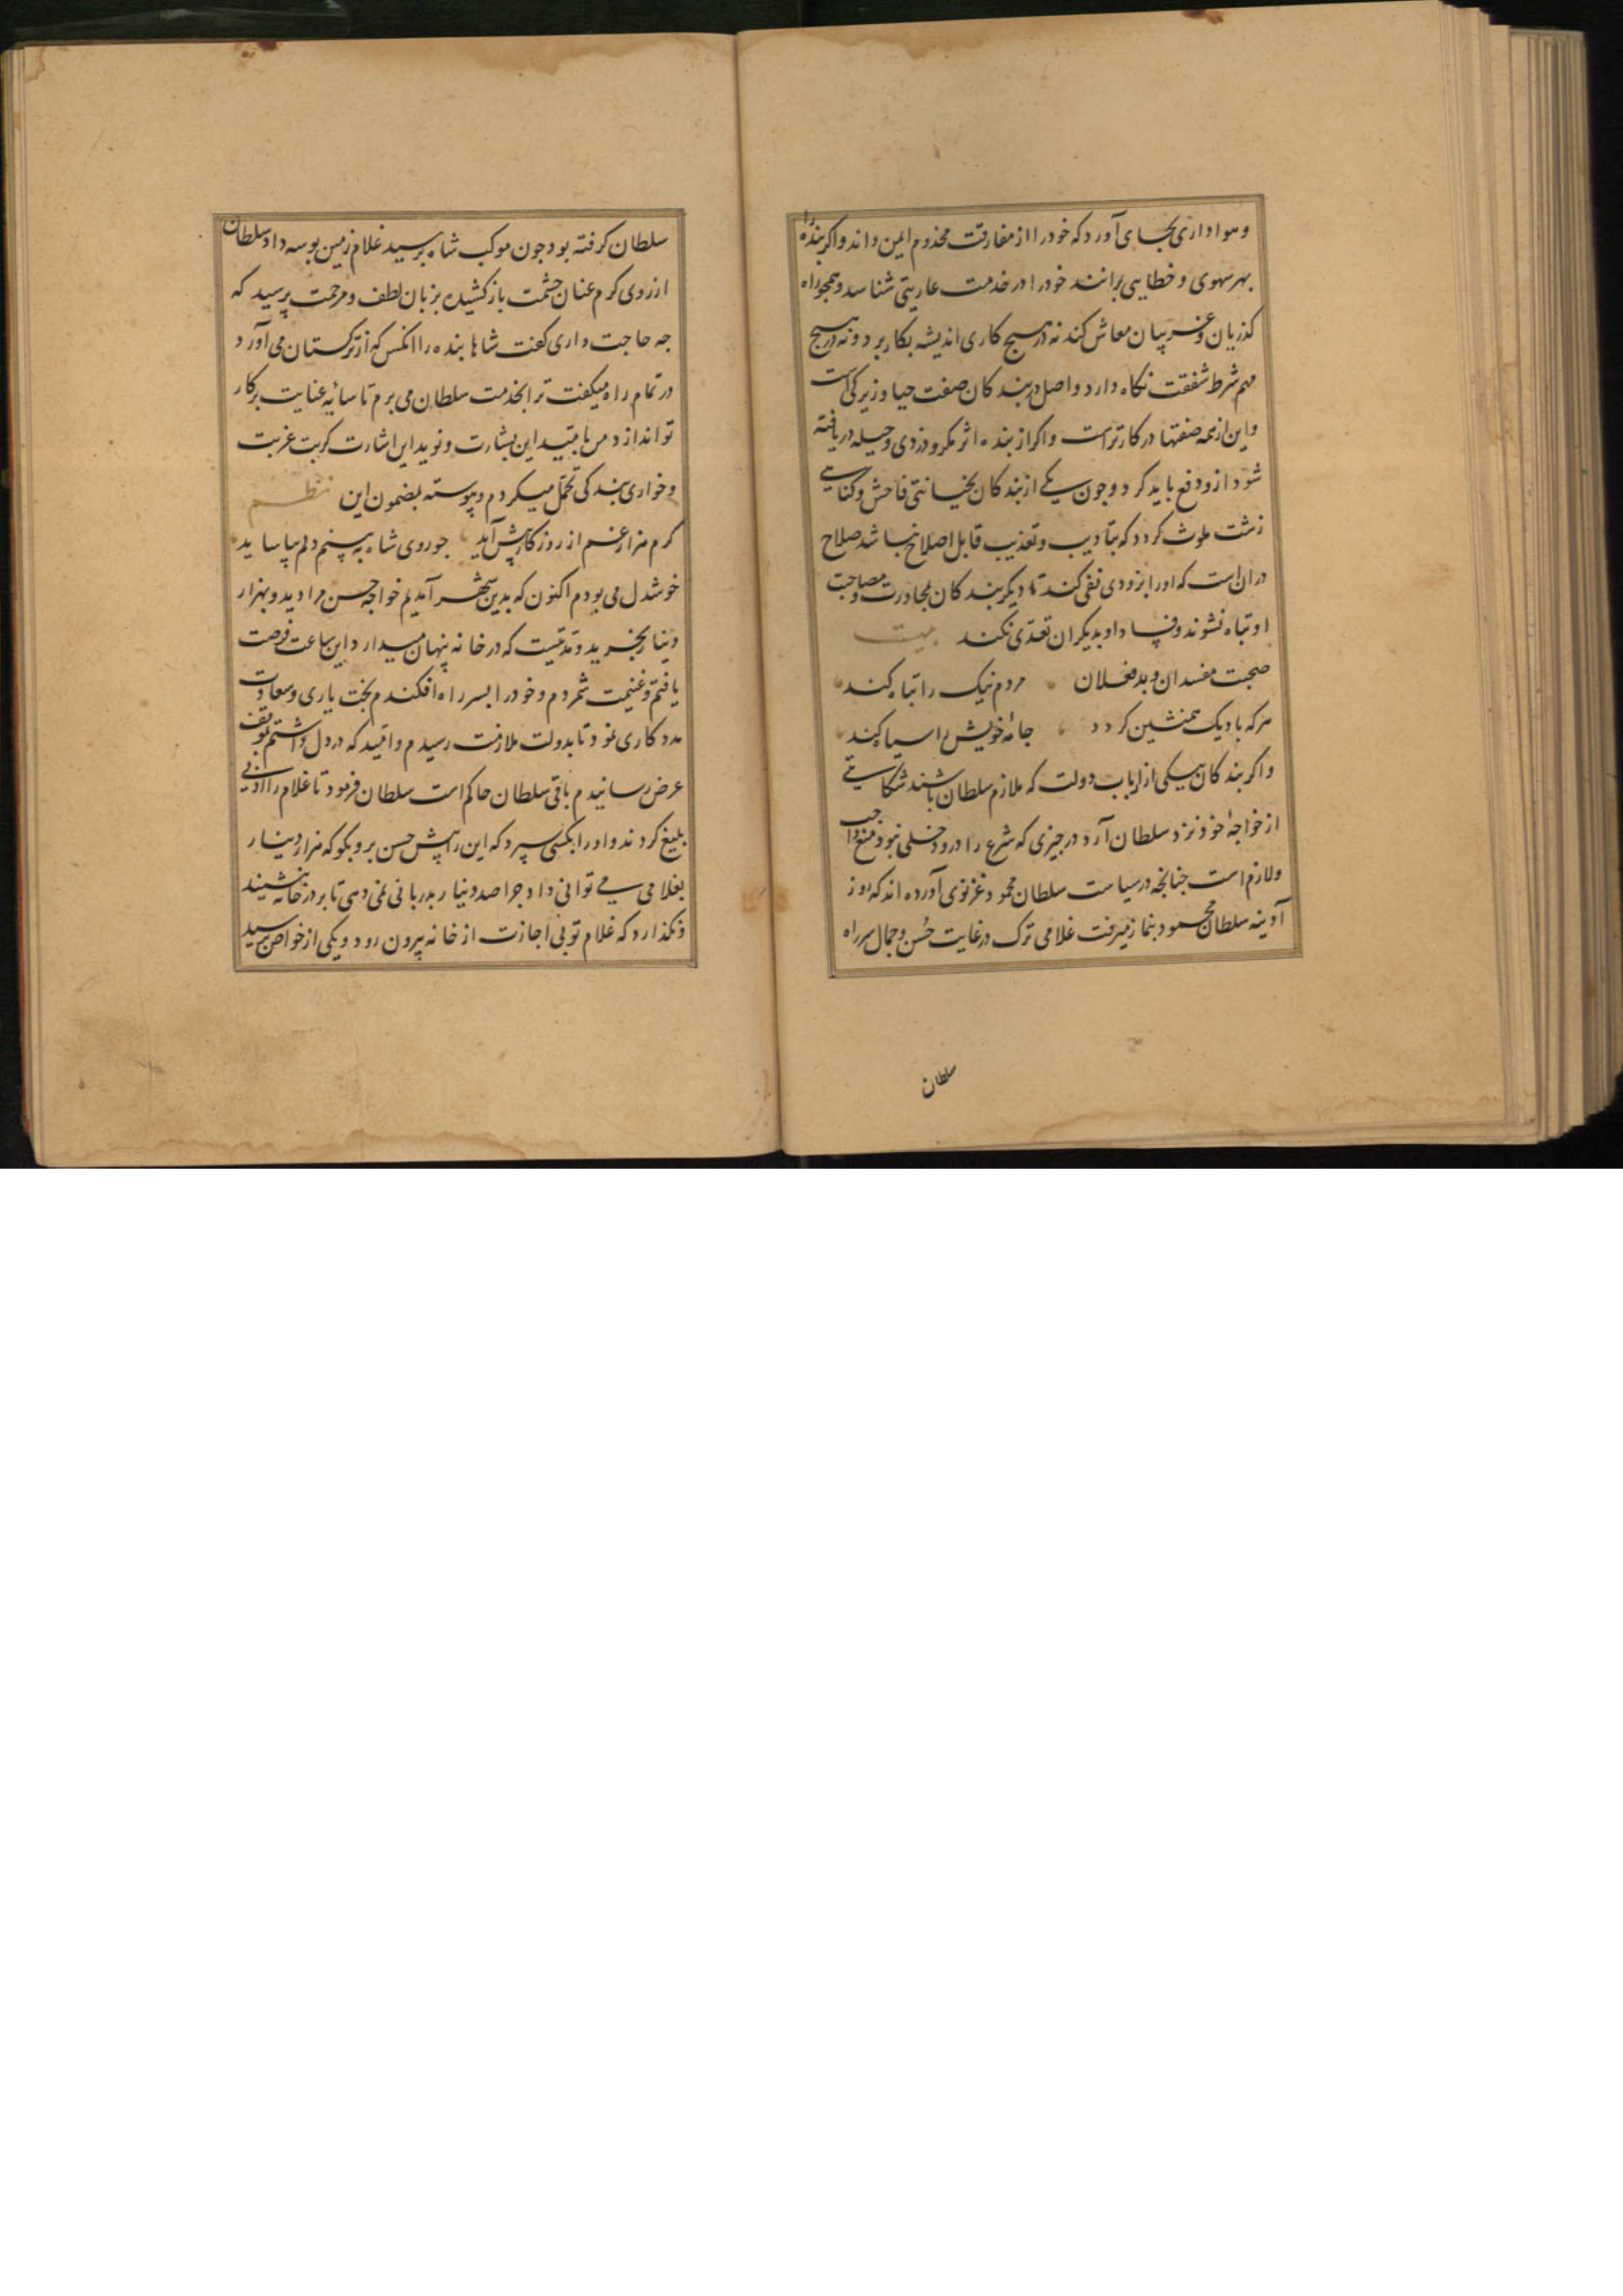 و هواداری بجای آورد که خود را از مفارقت مخدوم ایمن داند و اکر بنده را
بهر سهوی و خطایی برانند خود را در خدمت عاریتی شناسد و همجو راه
کذریان و غریبان معاش کند نه در هیج کاری اندیشه بکار برد و نه در هیج
مهم شرط شفقت نکاه دارد و اصل در بندکان صفت حیا و زیرکی است
و این از همه صفتها در کارتر است و اکر از بنده اثر مکر و دزدی و حیله دریافته
شود ازو دفع باید کرد و جون یکی از بندکان بخیانتی فاحش و کناهی
زشت ملوث کردد که بتادیب و تعذیب قابل اصلاح نباشد صلاح
دران است که او را بزودی نفی کند تا دیکر بندکان بمجاورت و مصاحبت
او تباه نشوند و فساد او بدیکران تعدی نکند بیت
صحبت مفسدان و بدفعلان مردم نیک را تباه کند
هر که با دیک همنشین کردد جامهٔ خویش را سیاه کند
و اکر بندکان یکی از ارباب دولت که ملازم سلطان باشند شکایتی
از خواجهٔ خود نزد سلطان آرد در جیزی که شرع را درو دخلی نبود منع واجب
و لازم است جنانجه در سیاست سلطان محمود غزنوی آورده اند که روز
آدینه سلطان محمود بنماز میرفت غلامی ترک در غایت حسن و جمال سر راه
سلطان
سلطان کرفته بود جون موکب شاه برسید غلام زمین بوسه داد سلطان
از روی کرم عنان حشمت باز کشیده بزبان لطف و مرحمت پرسید که
جه حاجت داری کفت شاها بنده را انکس که از ترکستان می آورد
در تمام راه میکفت ترا بخدمت سلطان می برم تا سایهٔ عنایت بر کار
تو اندازد من بامید این بشارت و نوید این اشارت کربت غربت
و خواری بندکی تحمل میکردم و پیوسته بمضمون این نظم
کرم هزار غم از روزکار پیش آید جو روی شاه ببینم دلم بیاساید
خوشدل می بودم اکنون که بدین شهر آمدیم خواجه حسن مرا دید و بهزار
دینار بخرید و مدتیست که در خانه پنهان میدارد این ساعت فرصت
یافتم و غنیمت شمردم و خود را بسر راه افکندم بخت یاری و سعادت
مددکاری نمود تا بدولت ملازمت رسیدم و امید که در دل داشتم بموقف
عرض رسانیدم باقی سلطان حاکم است سلطان فرمود تا غلام را ادبی
بلیغ کردند و او را بکسی سپرد که این را پیش حسن برو بکو که هزار دینار
بغلامی می توانی داد جرا صد دینار بدربانی نمی دهی تا بر در خانه نشیند
و نکذارد که غلام تو بی اجازت از خانه بیرون رود و یکی از خواص پرسید